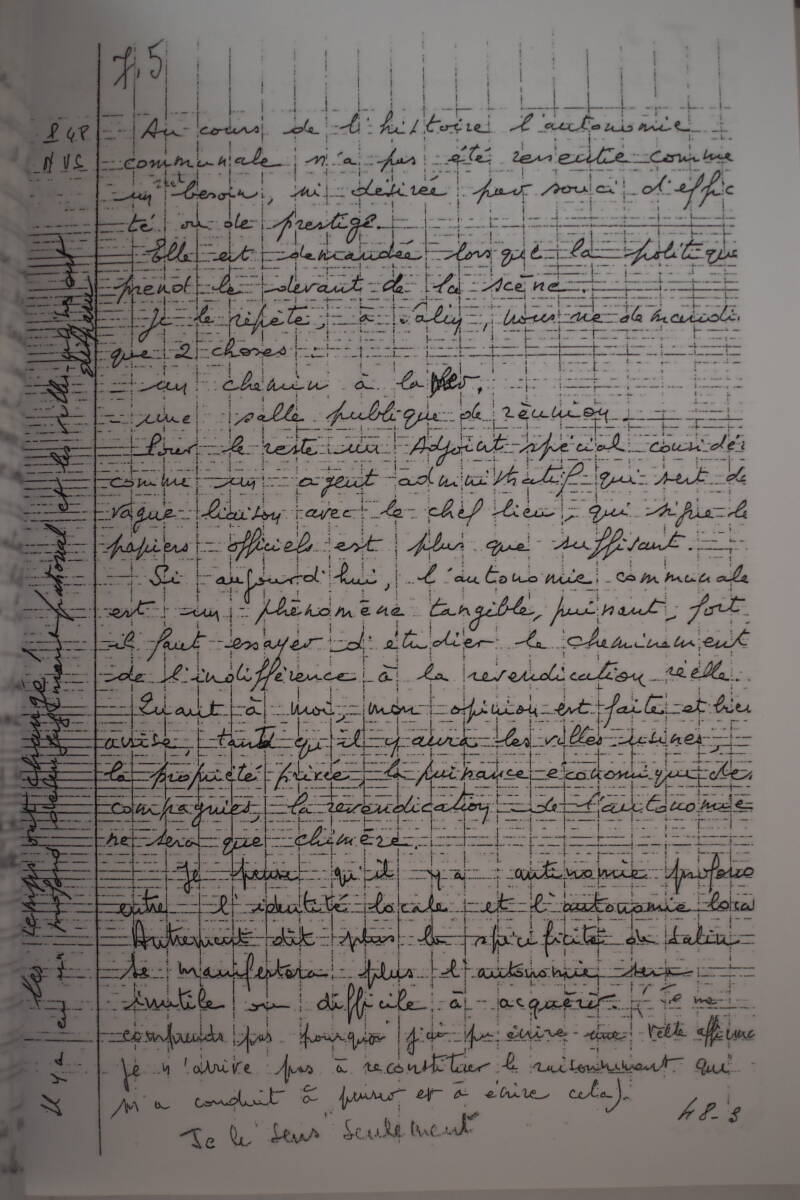 7,5
§ 48
N VS
Au cours de l'histoire l'autonomie
communale n'a pas été ressentie comme
un besoin, ni désirée par souci d'effic
té ou de prestige.
Elle est demandée lorsque la politique
prend le devant de la scène.
Je le répète, à Salin, nous ne demandi
que 2 choses :
- un chemin à la
- une salle publique de réunion.
Pour le reste un Adjoint spécial considér
comme un agent administratif qui sert de
vague liaison avec le chef lieu, qui signe le
papiers officiels est plus que suffisant.
Si aujourd'hui, l'autonomie communale
est un phénomène tangible, puissant, fort
il faut essayer d'étudier le cheminement
de l'indifférence à la revendication réelle.
Quant à moi, mon opinion est faite et bien
assise, tant qu'il y aura les villes usines,
la propriété privée, la puissance économique des
compagnies, la revendication de l'autonomie
ne sera que chimère.
Je pense qu'il y a antinomie profond
entre l'identité locale et l'autonomie loca
Autrement dit plus la spécificité de Salin
se manifestera plus l'autonomie sera
inutile ou difficile à acquérir. (Je ne
comprends pas pourquoi j'ai pu écrire une telle affirme
Je n'arrive pas à reconstituer le raisonnement qui
m'a conduit à penser et à écrire cela).
Je le "sens" seulement
48-3
Les temps ont changé !
Il y a eu un profond et les villes usines ont
disparu